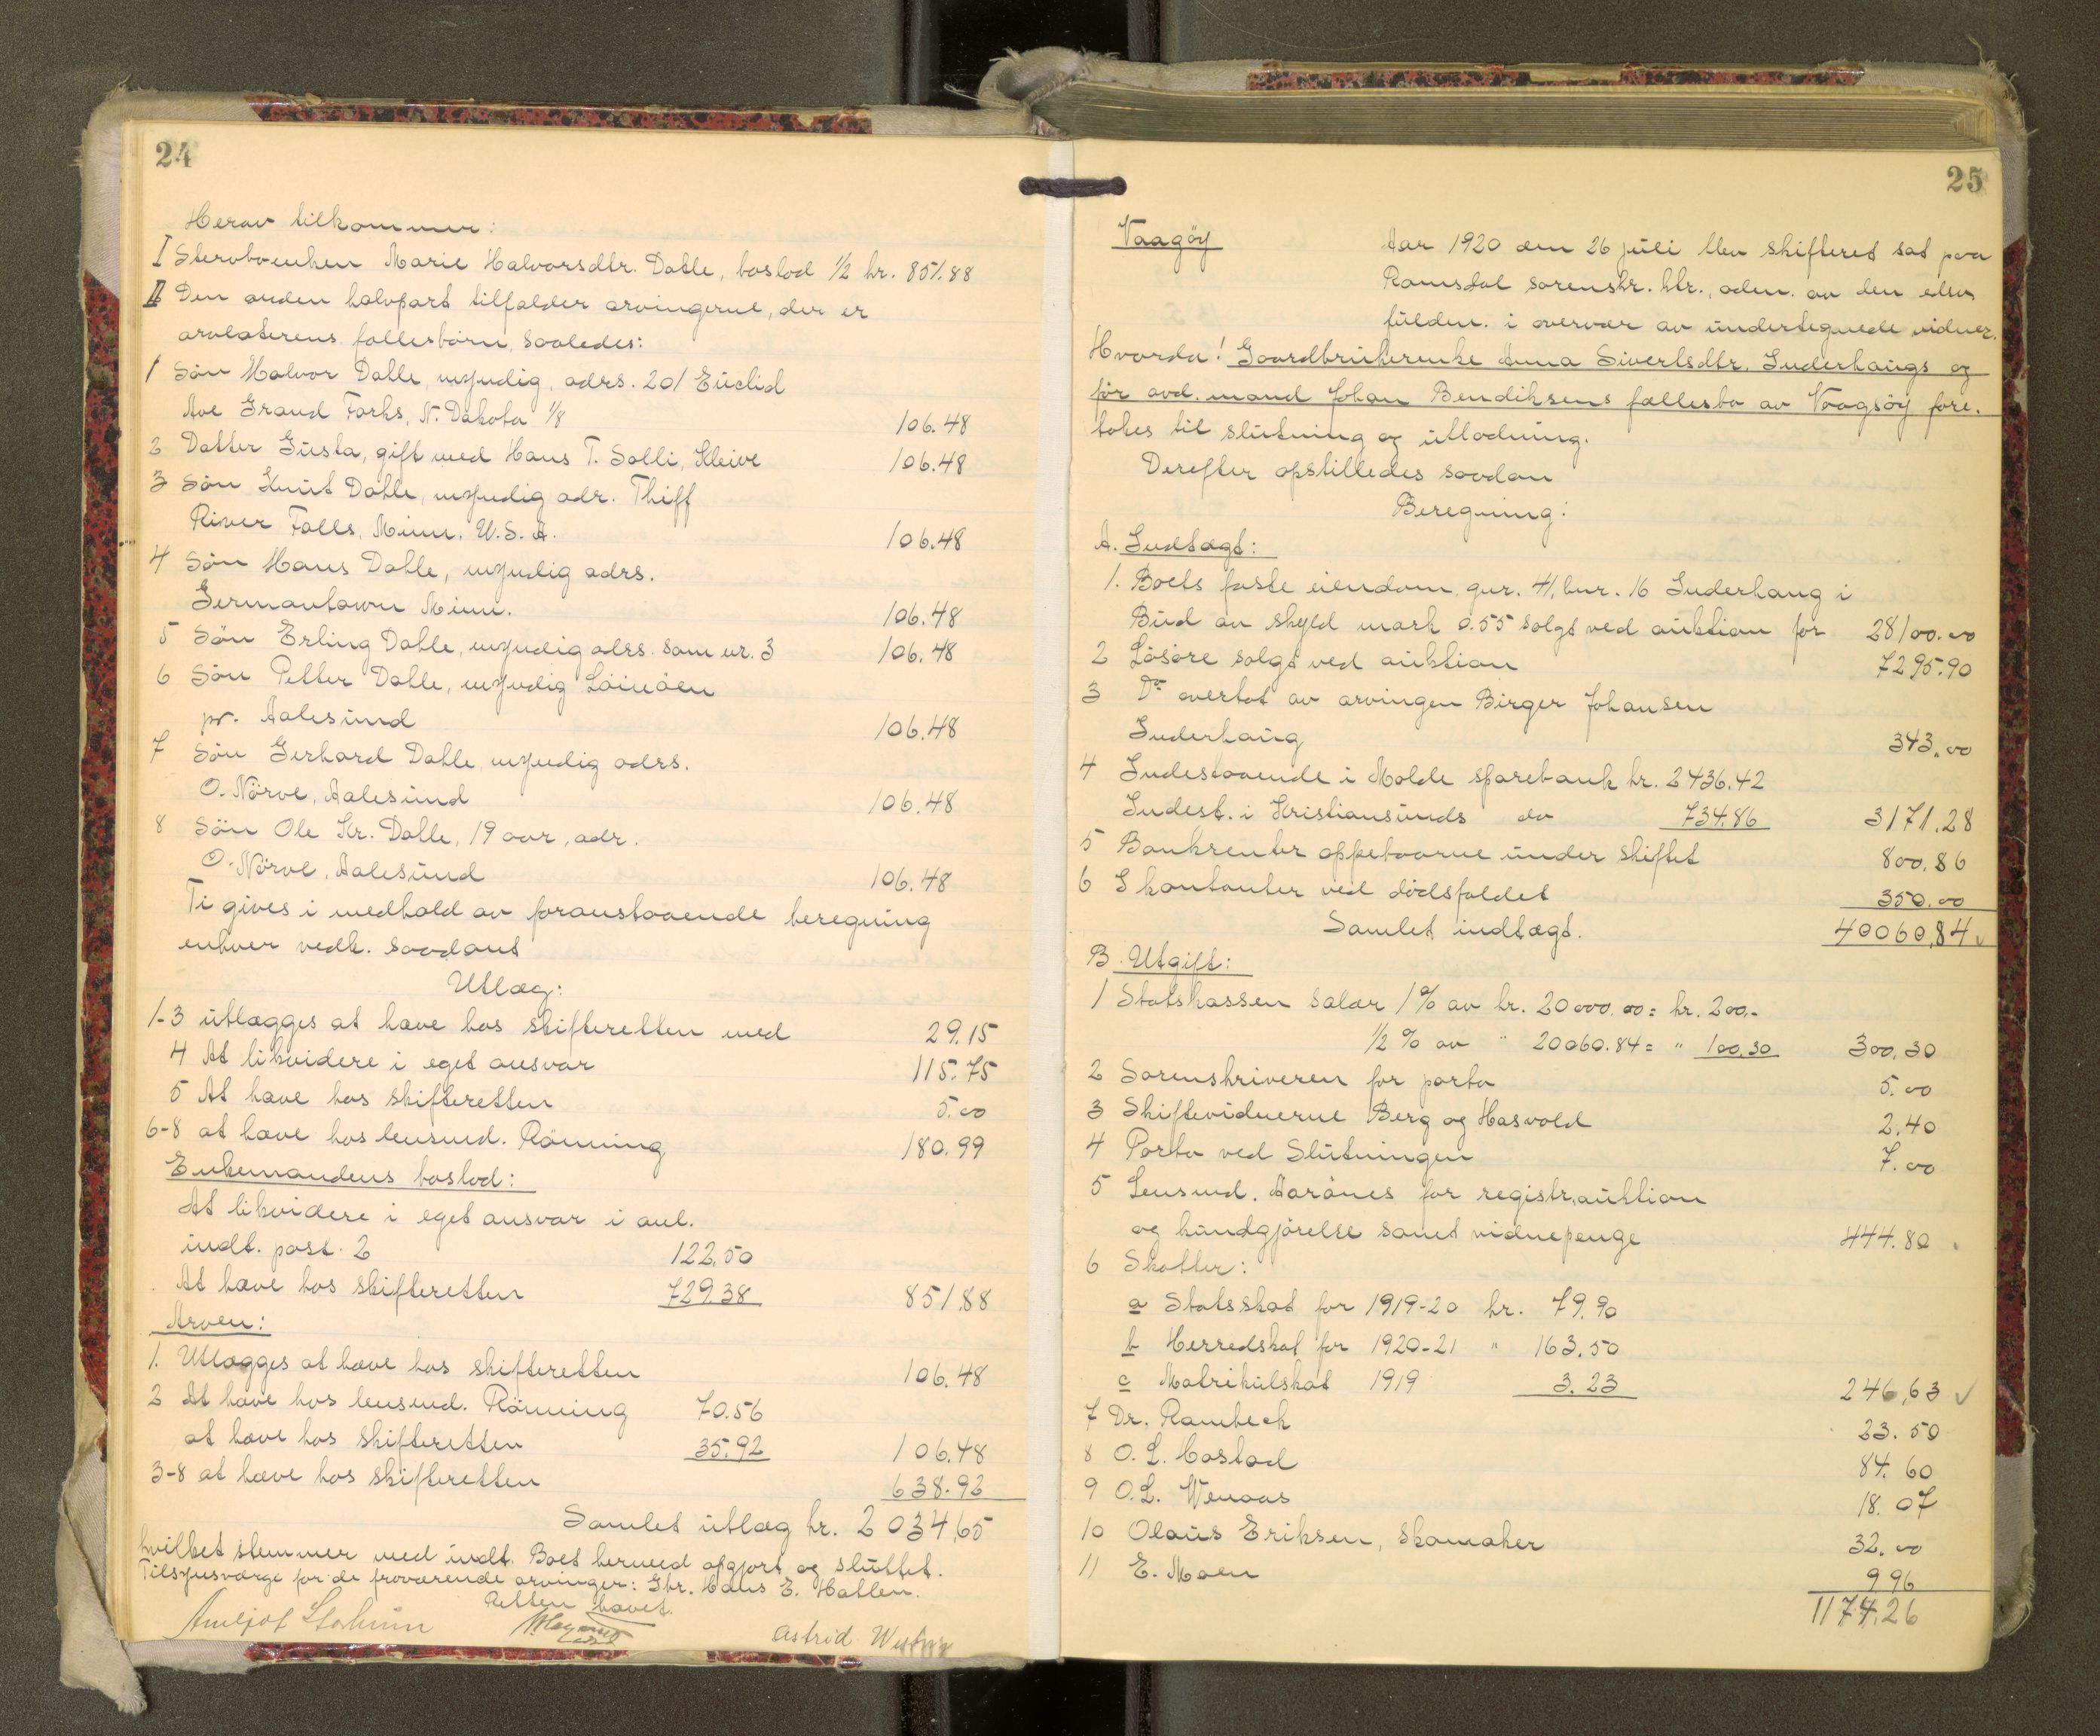 24
Herav tilkommer:
I Stervboenken Marie Halvorsdtr. Dahle, boslod 1/2 kr. 851.88
II Den anden halvpart tilfalder arvingerne, der er
arvelaterens fællesbörn, saaledes:
1 Sön Halvor Dahle, myndig, adrs. 201 Euclid
Ave Grand Forks, N. Dakota 1/8 106.48
2 Datter Gusta, gift med Hans T. Solli, Kleive 106.48
3 Sön Knut Dahle, myndig adr. Thiff
River Falls, Minn. U.S.A. 106.48
4 Sön Hans Dahle, myndig adrs.
Germantown Minn. 106.48
5 Sön Erling Dahle, myndig adrs. som nr. 3 106.48
6 Sön Petter Dahle, myndig
pr. Aalesund 106.48
7 Sön Gerhard Dahle myndig adrs.
O. Nörve, Aalesund 106.48
8 Sön Ole Kr. Dahle, 19 aar, adr.
O. Nörve, Aalesund 106.48
Ti gives i medhold av foranstaaende beregning
enhver vedk. saadant
Utlæg:
1-3 utlægges at hæve hos skifteretten med 29.15
4 At likvidere i eget ansvar 115.75
5 At hæve hos skifteretten 5.00
6-8 at hæve hos lensmd. Rönning 180.99
Enkemandens boslod:
At likvidere i eget ansvar i anl.
indt. post. 2 122.50
At hæve hos skifteretten 729.38 851.88
Arven:
1. Utlægges at hæve hos skifteretten 106.48
2 At hæve hos lensmd. Rönning 70.56
at hæve hos skifteretten 35.92 106.48
3-8 at hæve hos skifteretten 638.92
Samlet utlæg kr. 2034,65
hvilket stemmer med indt. Boet hermed opgjort og sluttet.
Tilsynsværge for de fraværende arvinger: Gbr. Hans E. Hallen.
Retten hævet.
Astrid
25
Vaagöy
Aar 1920 den 26 juli blev skifteret sat paa
Romsdal sorenskr. ktr., adm. av den edsv.
fuldm. i overvær av undertegnede vidner.
Hvorda! Gaardbrukerenke Anna Sivertsdtr. Inderhaugs og
för avd. mand Johan Bendiksens fællesbo av Vaagsöy fore-
tokes til slutning og utlodning.
Derefter opstilledes saadan
Beregning:
A. Indtægt:
1. Boets faste eiendom gnr. 41, bnr. 16 Inderhaug i
Bud av skyld mark 0.55 solgt ved auktion for 28100.00
2 Lösöre solgt ved auktion 7295.90
3 Do overtat av arvingen Birger Johansen
Inderhaug 343.00
4 Indestaaende i Molde sparebank kr. 2436.42
Indest. i Kristiansunds do 734.86 3171.28
5 Bankrenter oppebaarne under skiftet 800.86
6 I kontanter ved dödsfaldet 350.00
Samlet indtægt. 40060,84
B. Utgift:
1 Statskassen salær 1% av kr. 20000.00 = kr. 200.-
1/2 % av " 20060.84 = " 100.30 300.30
2 Sorenskriveren for porto 5.00
3 Skiftevidnerne Berg og Hasvold 2.40
4 Porto ved Slutningen 7.00
5 Lensmd. Aarönes for registr., auktion
og kundgjörelse samt vidnepenge 444.80
6 Skatter:
a Statsskat for 1919-20 kr. 79.90
b Herredskat for 1920-21 " 163.50
c Matrikulskat 1919 3.23 246,63
7 Dr. Rambech 23.50
8 O. L. Costad 84.60
9 O.L. Wenaas 18.07
10 Olaus Eriksen, Skomaker 32.00
11 E. Moen 9.96
1174,26